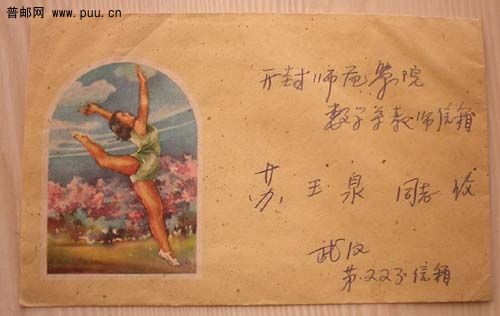 普邮网 www.puu.cn
开封师范学院
数学系教师信箱
苏 玉泉 同志 收
武汉
第.223信箱